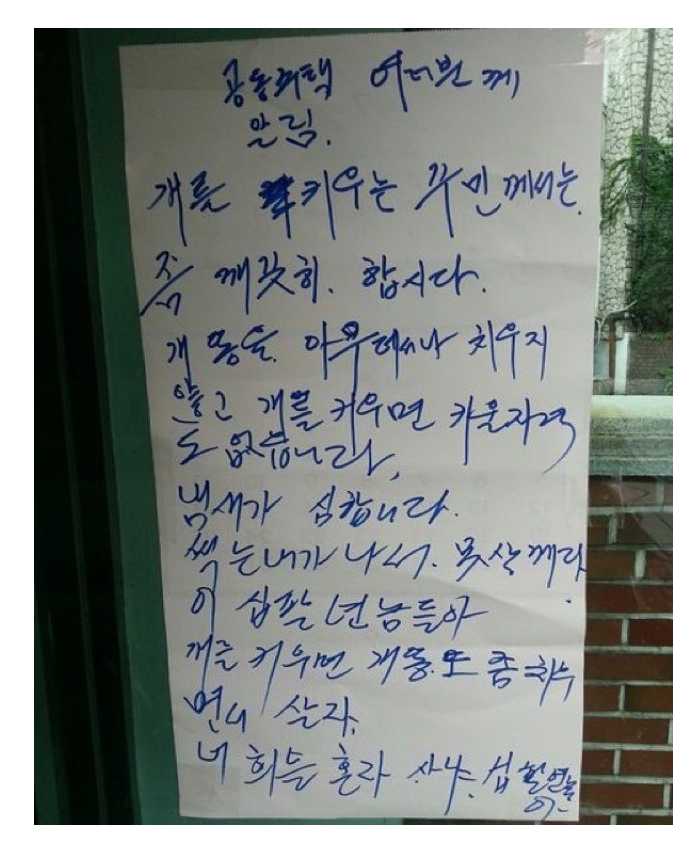 공동주택 여러분께
알림.
개를 키우는 주민께서는.
좀 깨끗히. 합시다.
개똥을. 아무데나 치우지
않고 개를 키우면 키울자격
도 없습니다,
냄새가 심합니다.
썩는내가 나서. 못살께다
이 십팔 년놈들아
개를 키우면 개똥도 좀 치우
면서 살자.
너희들 혼자 사냐. 십팔년놈
아-